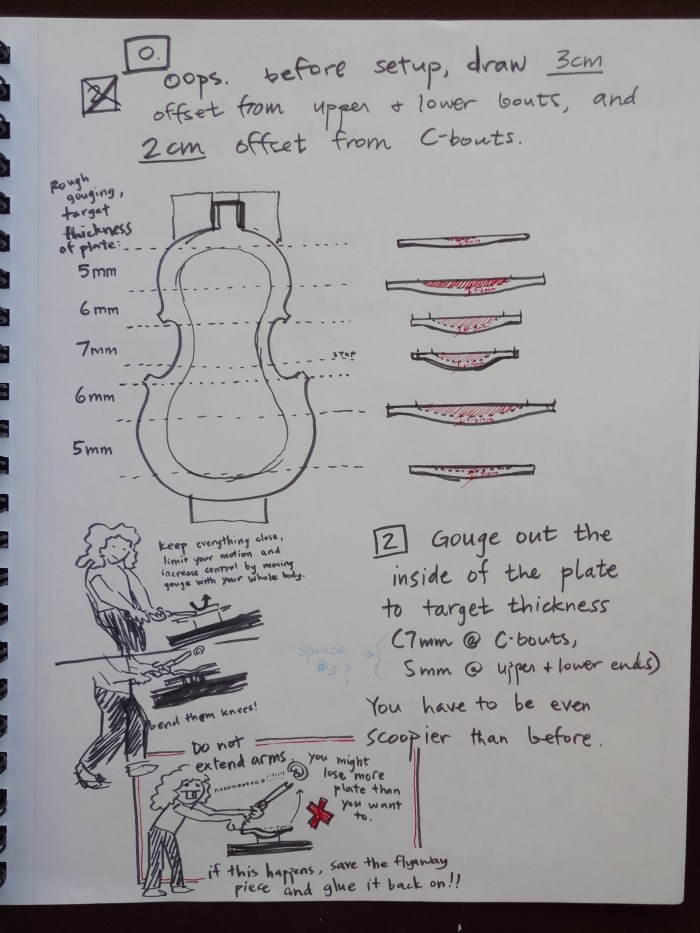 0.
Oops. before setup, draw 3cm
offset from upper + lower bouts, and
2cm offset from C-bouts.
Rough
gouging,
target
thickness
of plate:
5mm
6mm
7mm
6mm
5mm
STOP
keep everything close,
limit your motion and
increase control by moving
gouge with your whole body.
bend them knees!
2 Gouge out the
inside of the plate
to target thickness
(7mm @ C-bouts,
5mm @ upper + lower ends)
spruce
#s?
You have to be even
scoopier than before.
Do not
extend arms.
you might
lose more
plate than
you want
to.
if this happens, save the flyaway
piece and glue it back on!!